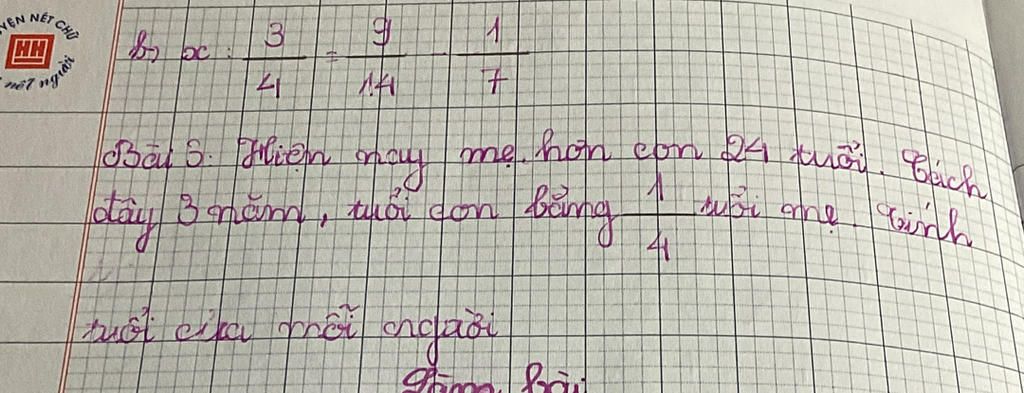 YỆN NÉT CHỮ
HH
nét người
b, x : 3/4 = 9/14 - 1/7
Bài 3: Hiện nay mẹ hơn con 24 tuổi. Cách
đây 3 năm, tuổi con bằng 1/4 tuổi mẹ. Tính
tuổi của mỗi người